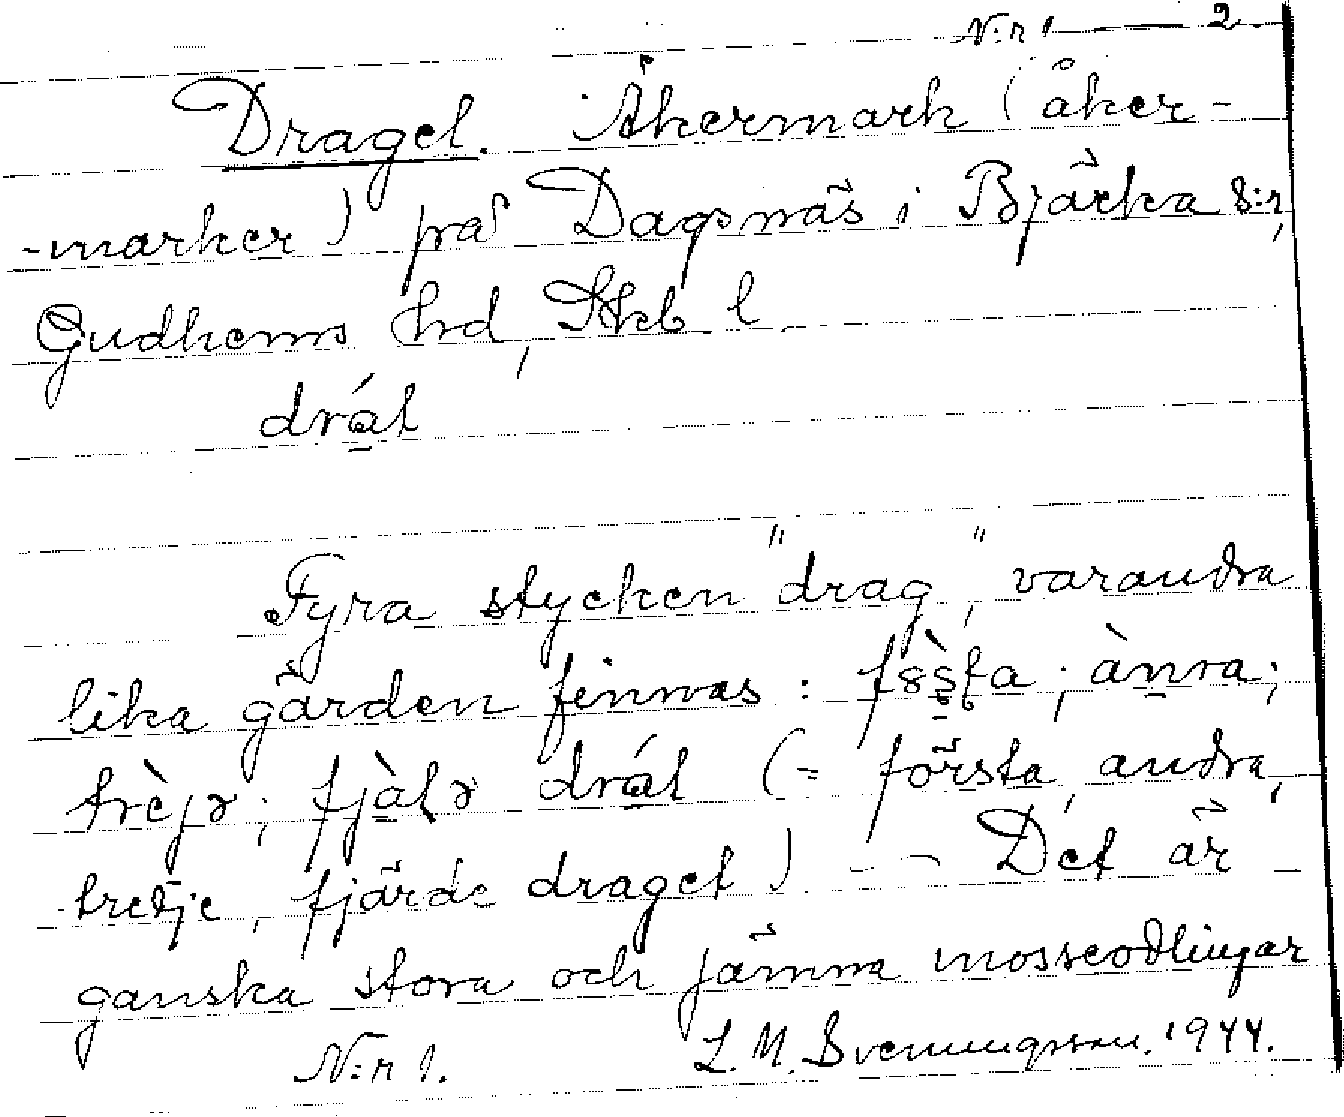 N:r 1 — 2
Draget. Åkermark (åker-
-marker) på Dagsnäs i Bjärka s:n,
Gudhems hrd, Skb l
drát
Fyra stycken "drag", varandra
lika gärden finnas: ; ànra;
trèjə; fjàlə drát (= första, andra,
tredje, fjärde draget) -- Det är
ganska stora och jämna mosseodlingar
N:r 1. L. M. Svenungsson. 1944.